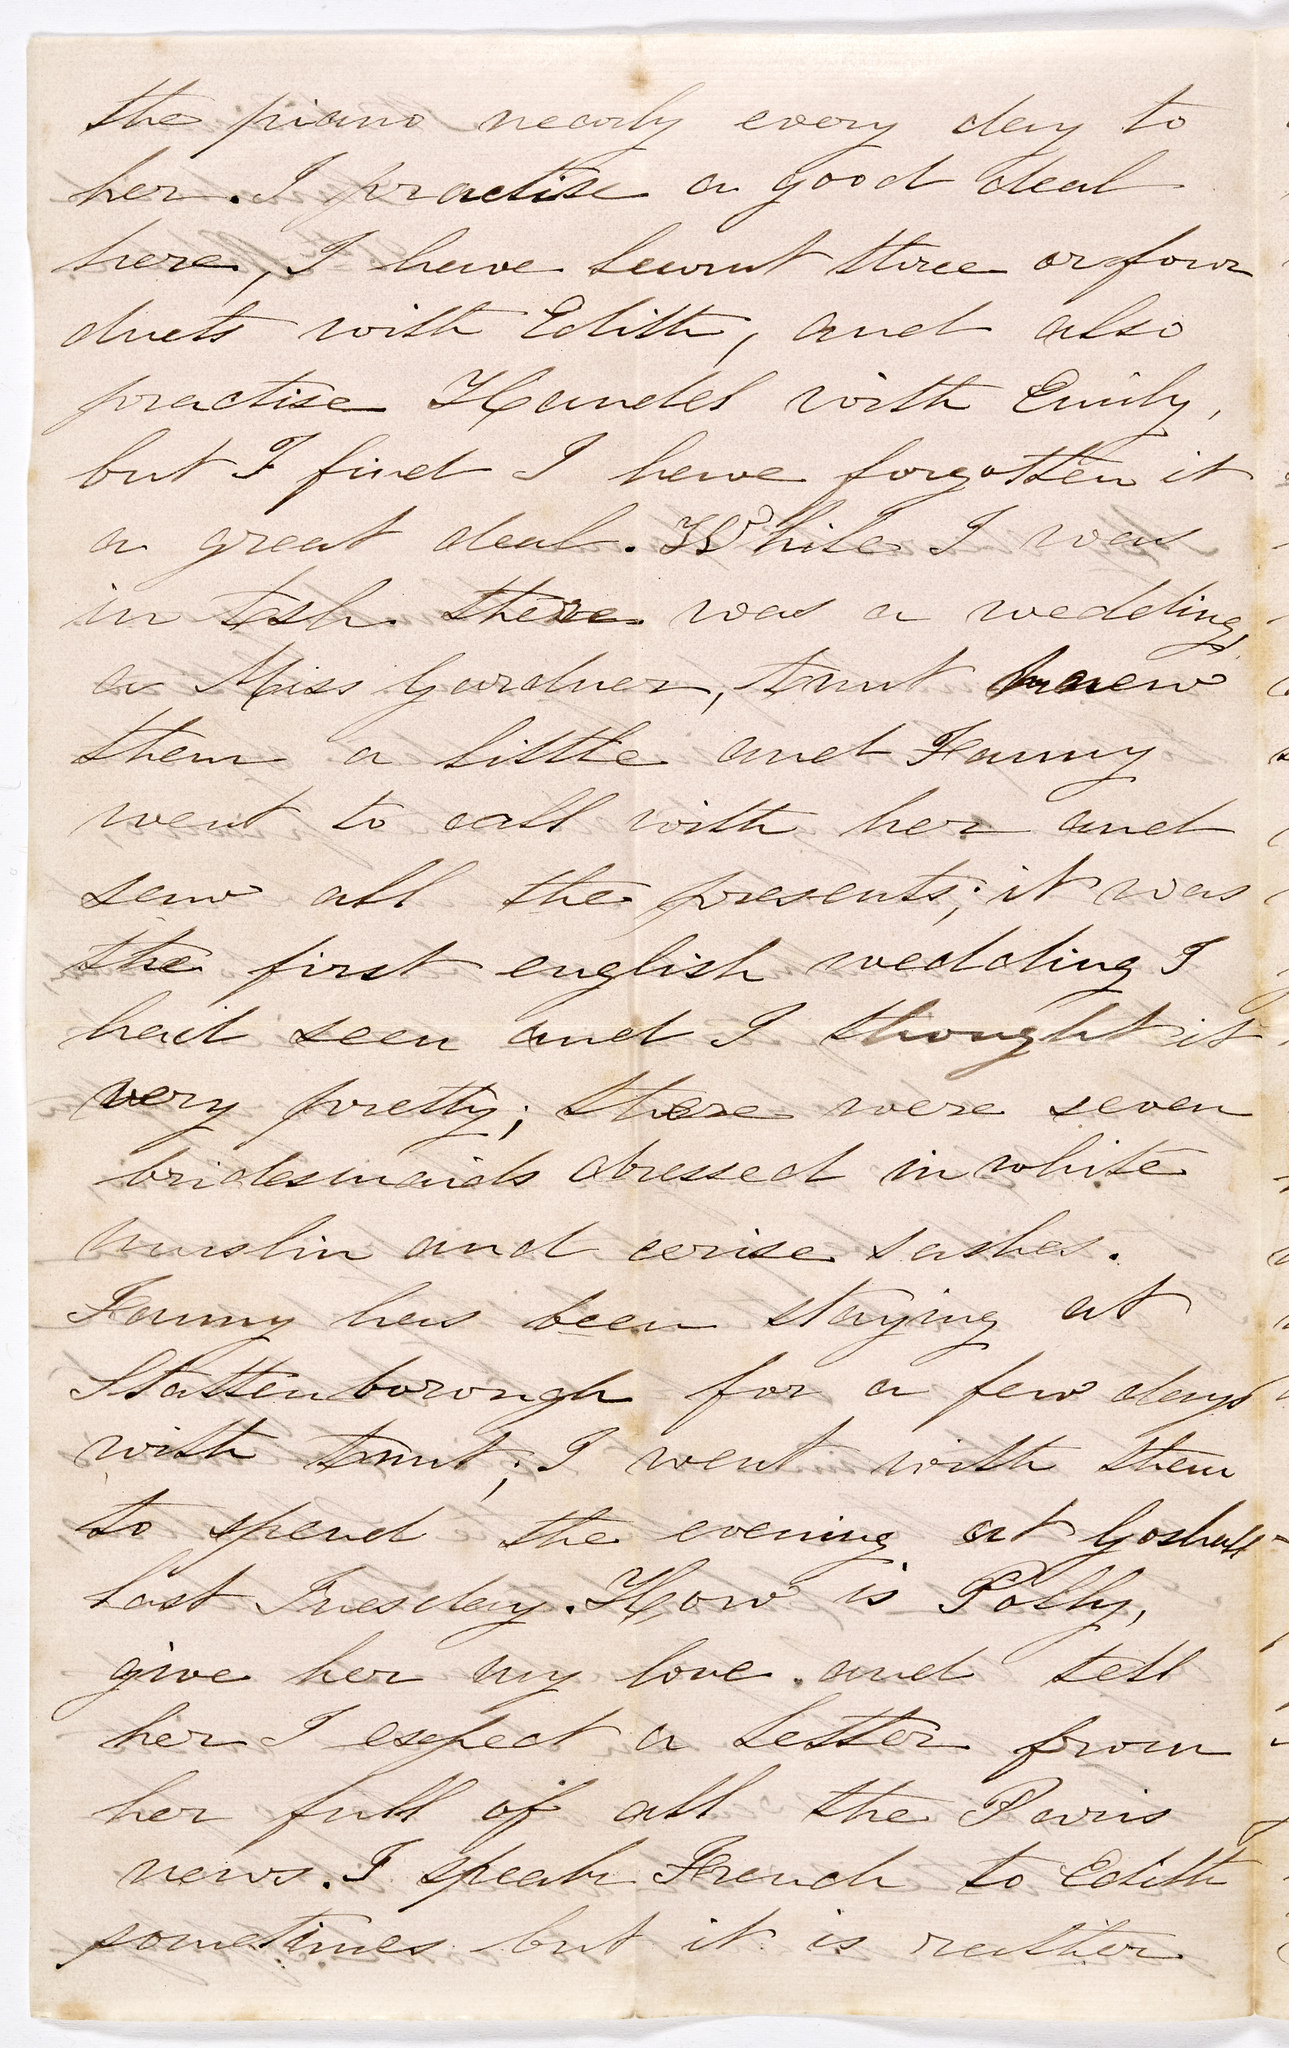 the piano nearly every day to
her. I practise a good deal
here, I have learnt three or four
duets with Edith, and also
practise Handel with Emily,
but I find I have forgotten it
a great deal. While I was
in Ash there was a wedding,
a Miss Gardner, Aunt knew
them a little and Fanny
went to call with her and
saw all the presents; it was
the first english wedding I
had seen and I thought it
very pretty; there were seven
bridesmaids dressed in white
muslin and cerise sashes.
Fanny has been staying at
Stattenborough for a few days
with Aunt; I went with them
to spend the evening at Goshall
last Tuesday. How is Polly,
give her my love and tell
her I expect a letter from
her full of all the Paris
news. I speak French to Edith
sometimes but it is rather